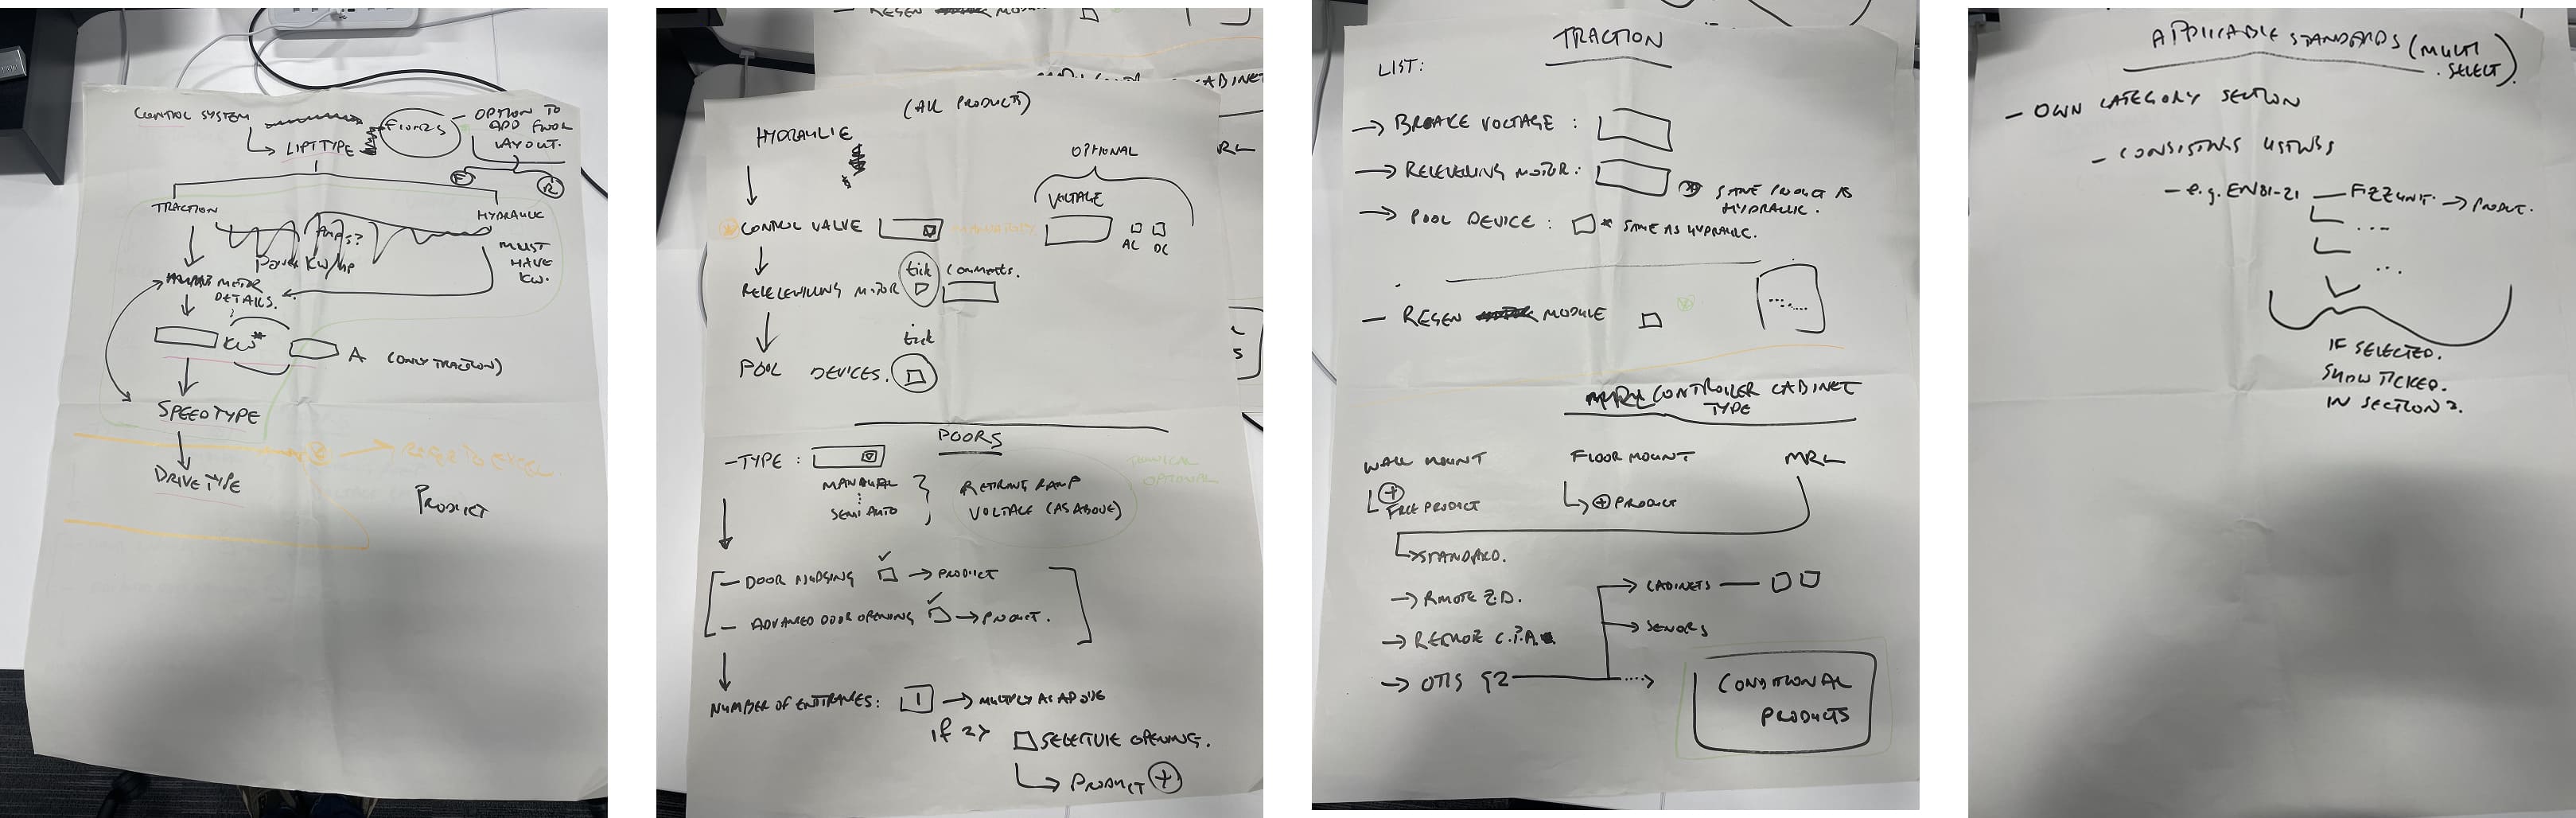 CONTROL SYSTEM
FLOORS
- OPTION TO
ADD FLOOR
LAYOUT.
LIFT TYPE
F
R
TRACTION
HYDRAULIC
Amps?
Power KW/HP
MUST
HAVE
KW.
MOTOR
DETAILS.
KW*
A (ONLY TRACTION)
SPEED TYPE
DRIVE TYPE
PRODUCT
- REGEN MODULE
CABINET
(ALL PRODUCTS)
HYDRAULIC
OPTIONAL
RL
VOLTAGE
CONTROL VALVE
AC DC
tick
comments.
RELEVELLING MOTOR
tick
POOL DEVICES.
DOORS
- TYPE :
MANAUAL
SEMI AUTO
RETIRING RAMP
VOLTAGE (AS ABOVE)
OPTIONAL
- DOOR NUDGING → PRODUCT
- ADVANCED DOOR OPENING → PRODUCT.
NUMBER OF ENTRANCES: 1 → MULTIPLY AS ABOVE
if 2>
SELECTIVE OPENING.
PRODUCT +
TRACTION
LIST:
→ BREAKE VOLTAGE :
→ RELEVELLING MOTOR:
* SAME PRODUCT AS
HYDRAULIC.
→ POOL DEVICE : * SAME AS HYDRAULIC.
- REGEN MODULE
CONTROLLER CABINET
TYPE
WALL MOUNT
FLOOR MOUNT
MRL
+
FREE PRODUCT
→ + PRODUCT
→ STANDARD.
→ RMOTE E.D.
→ REMOTE
→ OTIS G2
→ CABINETS
→ SENORS
....→
CONDITIONAL
PRODUCTS
APPLICABLE STANDARDS (MULTI
SELECT)
- OWN CATEGORY SECTION
- CONSISTING LISTINGS
- e.g. EN81-21 — → PRODUCT.
...
...
IF SELECTED.
SHOW TICKED.
IN SECTION 2.